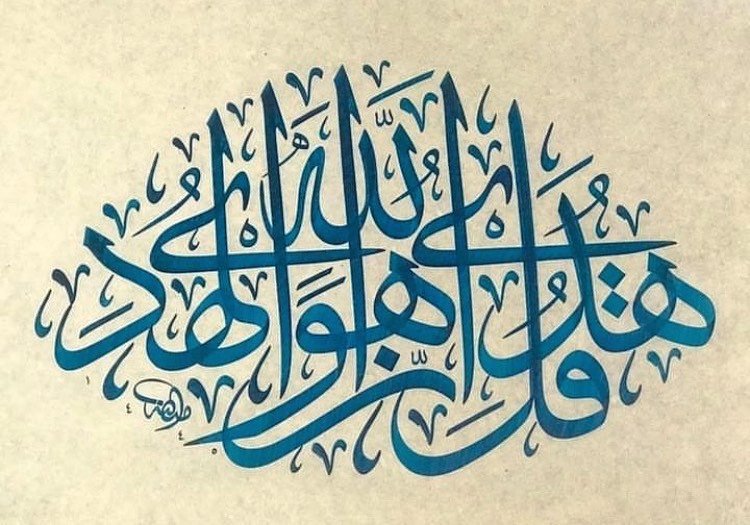 قُلْ إِنَّ هُدَى اللّٰهِ هُوَ الْهُدَى